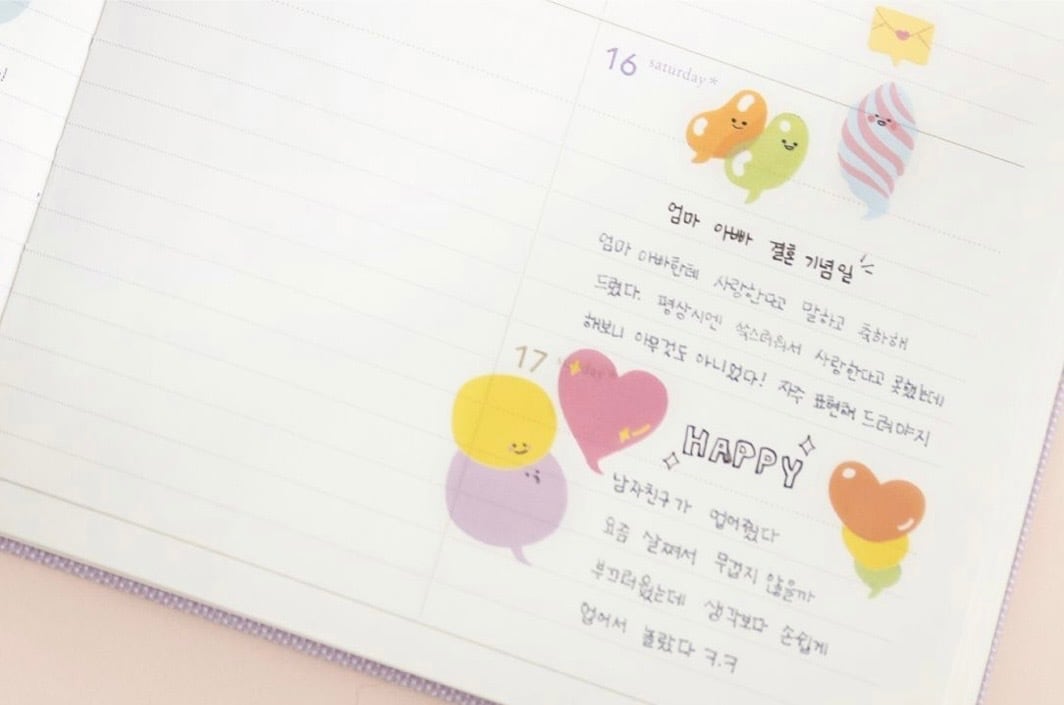 16 saturday*
엄마 아빠 결혼 기념일
엄마 아빠한테 사랑한다고 말하고 축하해
드렸다. 평상시엔 쑥스러워서 사랑한다고 못했는데
해보니 아무것도 아니었다! 자주 표현해 드려야지
17
HAPPY
남자친구가 업어줬다
요즘 살쪄서 무겁지 않을까
부끄러웠는데 생각보다 손쉽게
업어서 놀랐다 ㅋ.ㅋ